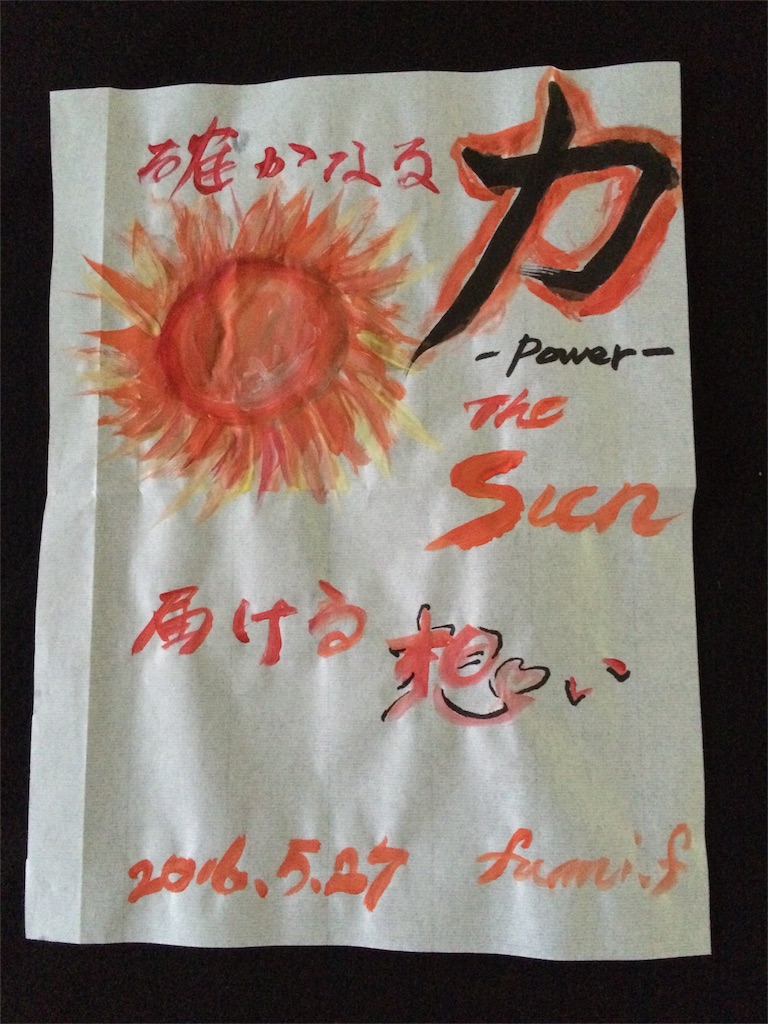 確かなる力
-power-
The
Sun
届ける想い
2016.5.27 fumi.f